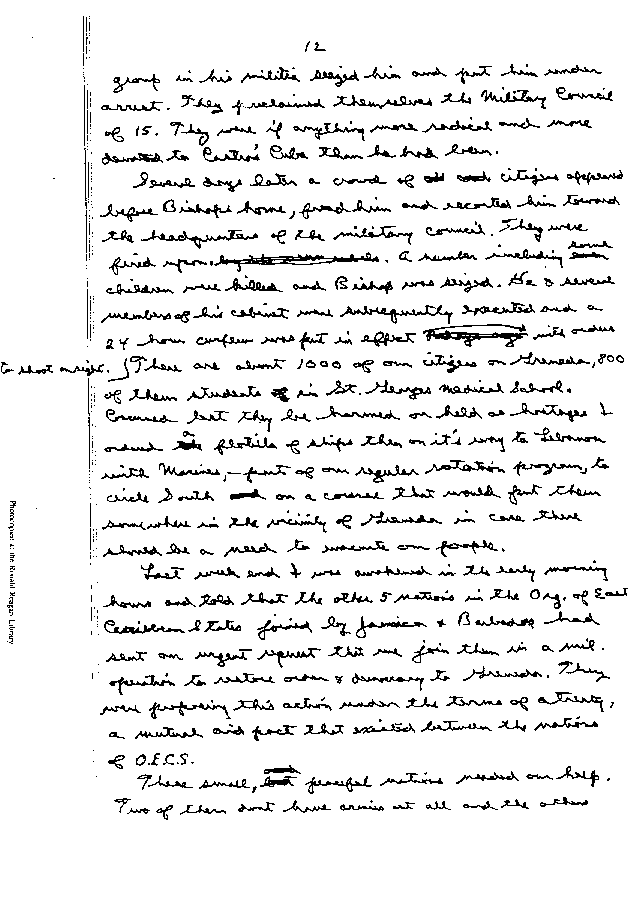 12
group in his militia seized him and put him under
arrest. They proclaimed themselves the Military Council
of 15. They were if anything more radical and more
devoted to Castro's Cuba than he had been.
Several days later a crowd of citizens appeared
before Bishops home, freed him and escorted him toward
the headquarters of the military council. They were
fired upon. A number including some
children were killed and Bishop was seized. He & several
members of his cabinet were subsequently executed and a
24 hour curfew was put in effect with orders
to shoot on sight. There are about 1000 of our citizens on Grenada, 800
of them students in St. Georges Medical School.
Concerned lest they be harmed or held as hostages I
ordered a flotilla of ships then on it's way to Lebanon
with Marines, – part of our regular rotation program, to
circle South on a course that would put them
somewhere in the vicinity of Grenada in case there
should be a need to evacuate our people.
Last week end I was awakened in the early morning
hours and told that the other 5 nations in the Org. of East
Caribbean States joined by Jamaica & Barbados had
sent an urgent request that we join them in a mil.
operation to restore order & democracy to Grenada. They
were proposing this action under the terms of a treaty,
a mutual aid pact that existed between the nations
of O.E.C.S.
These small, peaceful nations needed our help.
Two of them dont have armies at all and the others
Photocopied at the Ronald Reagan Library